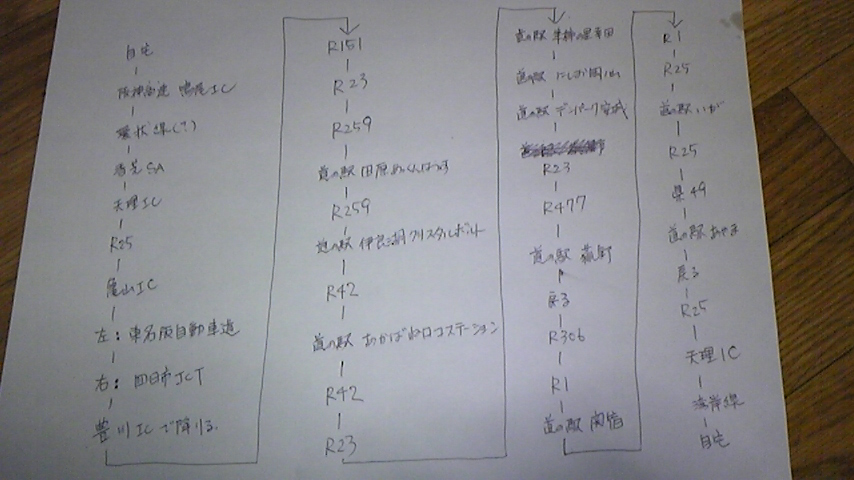 自宅
阪神高速 鳴尾IC
環状線(?)
香芝SA
天理IC
R25
亀山IC
左: 東名阪自動車道
右: 四日市JCT
豊川ICで降りる
R151
R23
R259
道の駅 田原めっくんはうす
R259
道の駅 伊良湖クリスタルポルト
R42
道の駅 あかばねロコステーション
R42
R23
道の駅 筆柿の里幸田
道の駅 にしお岡ノ山
道の駅 デンパーク安城
R23
R477
道の駅 菰野
戻る
R306
R1
道の駅 関宿
R1
R25
道の駅 いが
R25
県49
道の駅 あやま
戻る
R25
天理IC
湾岸線
自宅